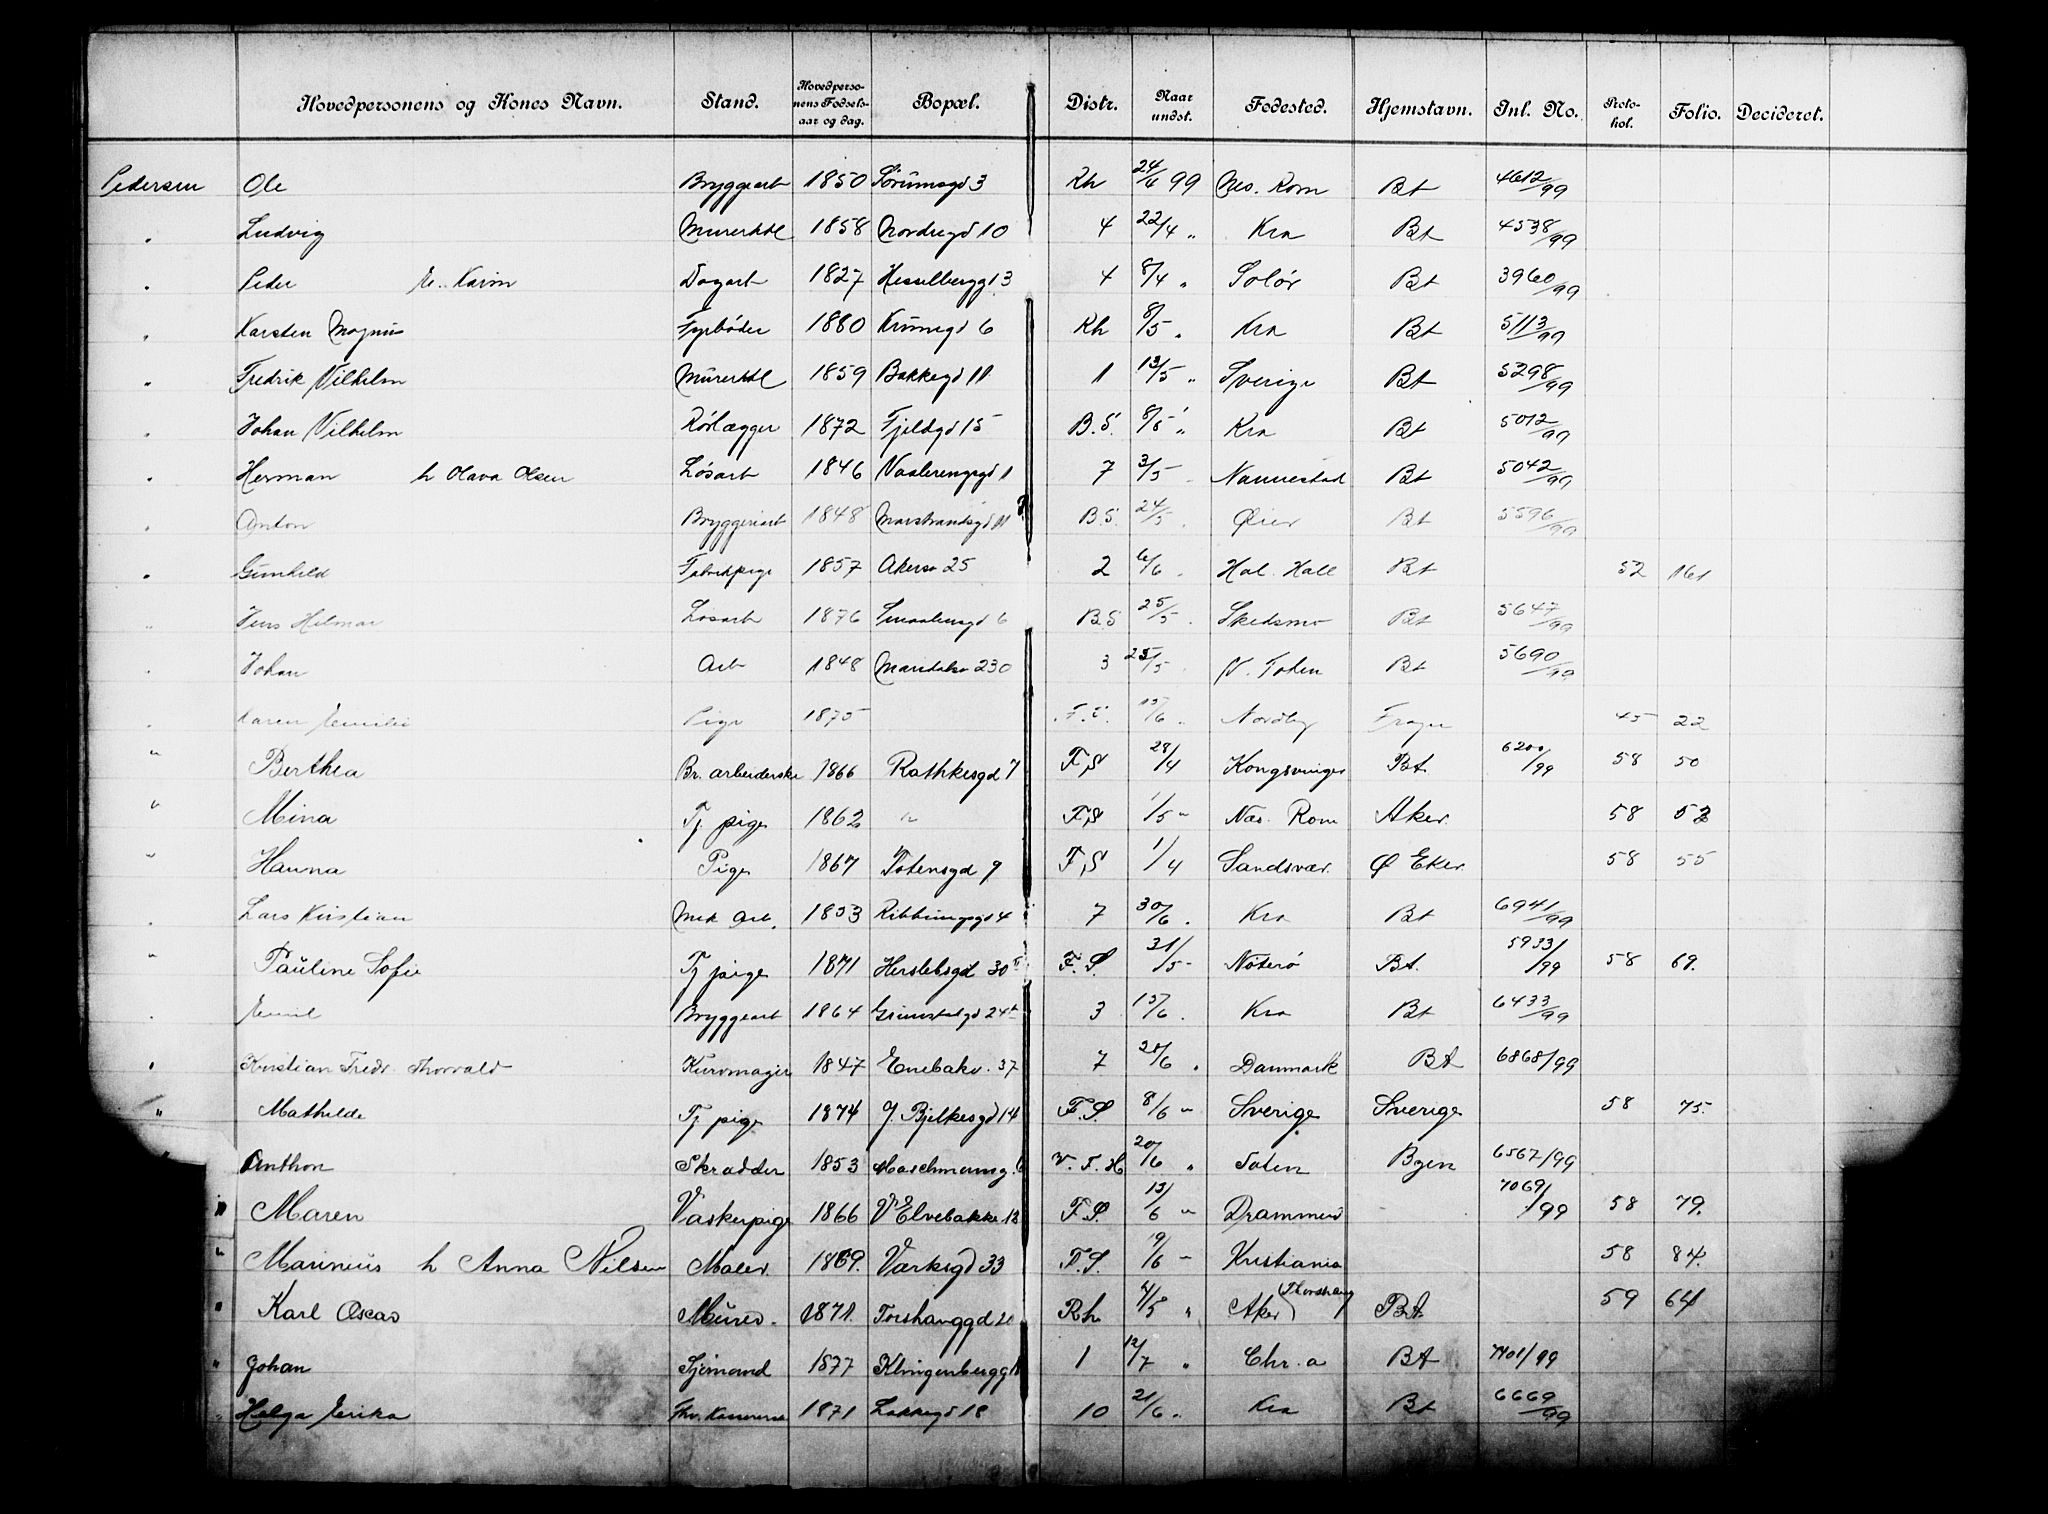 Hovedpersonens og Kones Navn. Stand. Hovedperso-nens Fødsels-aar og dag. Bopæl. Distr. Naar undst. Fødested. Hjemstavn. Inl. No. Proto-kol. Folio. Decideret.
Pedersen Ole Bryggeart 1850 Sørumsgd 3 Rh 24/6 99 Nes. Rom Bt 4612/99
" Ludvig Murerhdl 1858 Nordregd 10 4 22/4 " Kra Bt 4538/99
" Peder E. Karin Dagarb 1827 Hesselbergg 13 4 8/4 " Solør Bt 3960/99
" Karsten Magnus Fyrbøder 1880 Krumsgd 6 Rh 8/5 " Kra Bt 5113/99
" Fredrik Vilhelm Murerhdl 1859 Bakkegd 11 1 13/5 " Sverige Bt 5298/99
" Johan Vilhelm Rørlægger 1872 Fjeldgd 15 B.S. 8/5 " Kra Bt 5012/99
" Herman h Olava Olsen Løsarb 1846 Vaalerengsgd 1 7 3/5 Nannestad Bt 5042/99
" Anton Bryggeriarb 1848 Marstrandsgd 11 B.S. 24/5 Øier Bt 5596/99
" Gunhild Fabrikpige 1857 Akersv 25 2 6/6 Hol. Hall Bt 52 161
" Jens Hilmar Løsarb 1876 Smaalensgd 6 B.S 25/5 Skedsmo Bt 5647/99
" Johan Arb 1848 Maridalsv 230 3 25/5 V. Toten Bt 5690/99
" Karen Emilie Pige 1875 F.S. 15/6 " Nordby 45 22
" Berthea Br. arbeiderske 1866 Rathkesgd 7 F.S 28/4 Kongsvinger Bt. 6200/99 58 50
" Mina Tj. pige 1862 " F.S 1/5 " Næs. Rom Aker. 58 52
" Hanna Pige 1867 Totensgd 9 F.S 1/4 Sandsvær. Ø Eker. 58 55
" Lars Kristian Mek Arb. 1853 Ribbungsgd 4 7 30/6 . Kra Bt 6941/99
" Pauline Sofie Tj pige 1871 Herslebsgd 30 F.S. 31/5 - Nøterø Bt. 5933/99 58 69.
" Emil Bryggearb 1864 Grimstadgd 24 3 15/6 . Kra Bt 6433/99
" Kristian Fredr. Thorvald Kurvmager 1847 Enebakv. 37 7 20/6 . Danmark Bt 6868/99
" Mathilde Tj. pige 1874 J. Bjelkesgd 14 F.S. 8/6 " Sverige Sverige 58 75.
" Anthon Skrædder 1853 Maschmanng. 6 V.F.H 20/6 " Toten Byen 6567/99
" Maren Vaskerpige 1866 V Elvebakke 12 F.S. 13/6 " Drammen 7069/99 58 79.
" Marinius h Anna Nilsen Maler. 1869. Værksgd 33 F.S. 9/6 " Kristiania 58 84.
" Karl Oscar Murer. 1871. Torshauggd 21 Rh. 4/5 " Aker (Thorshaug) Bt. 59 64
" Johan Sjømand 1877 Klingenbergg 1 12/7 " Chr.a Bt 7101/99
" Helga Erika 1871 Lakkegd 18 10 21/6 " Kra Bt 6669/99